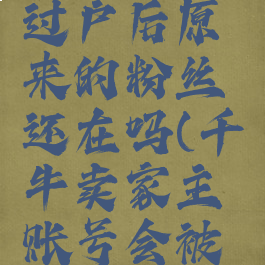 过户后原
来的粉丝
还在吗(千
牛卖家主
账号会被